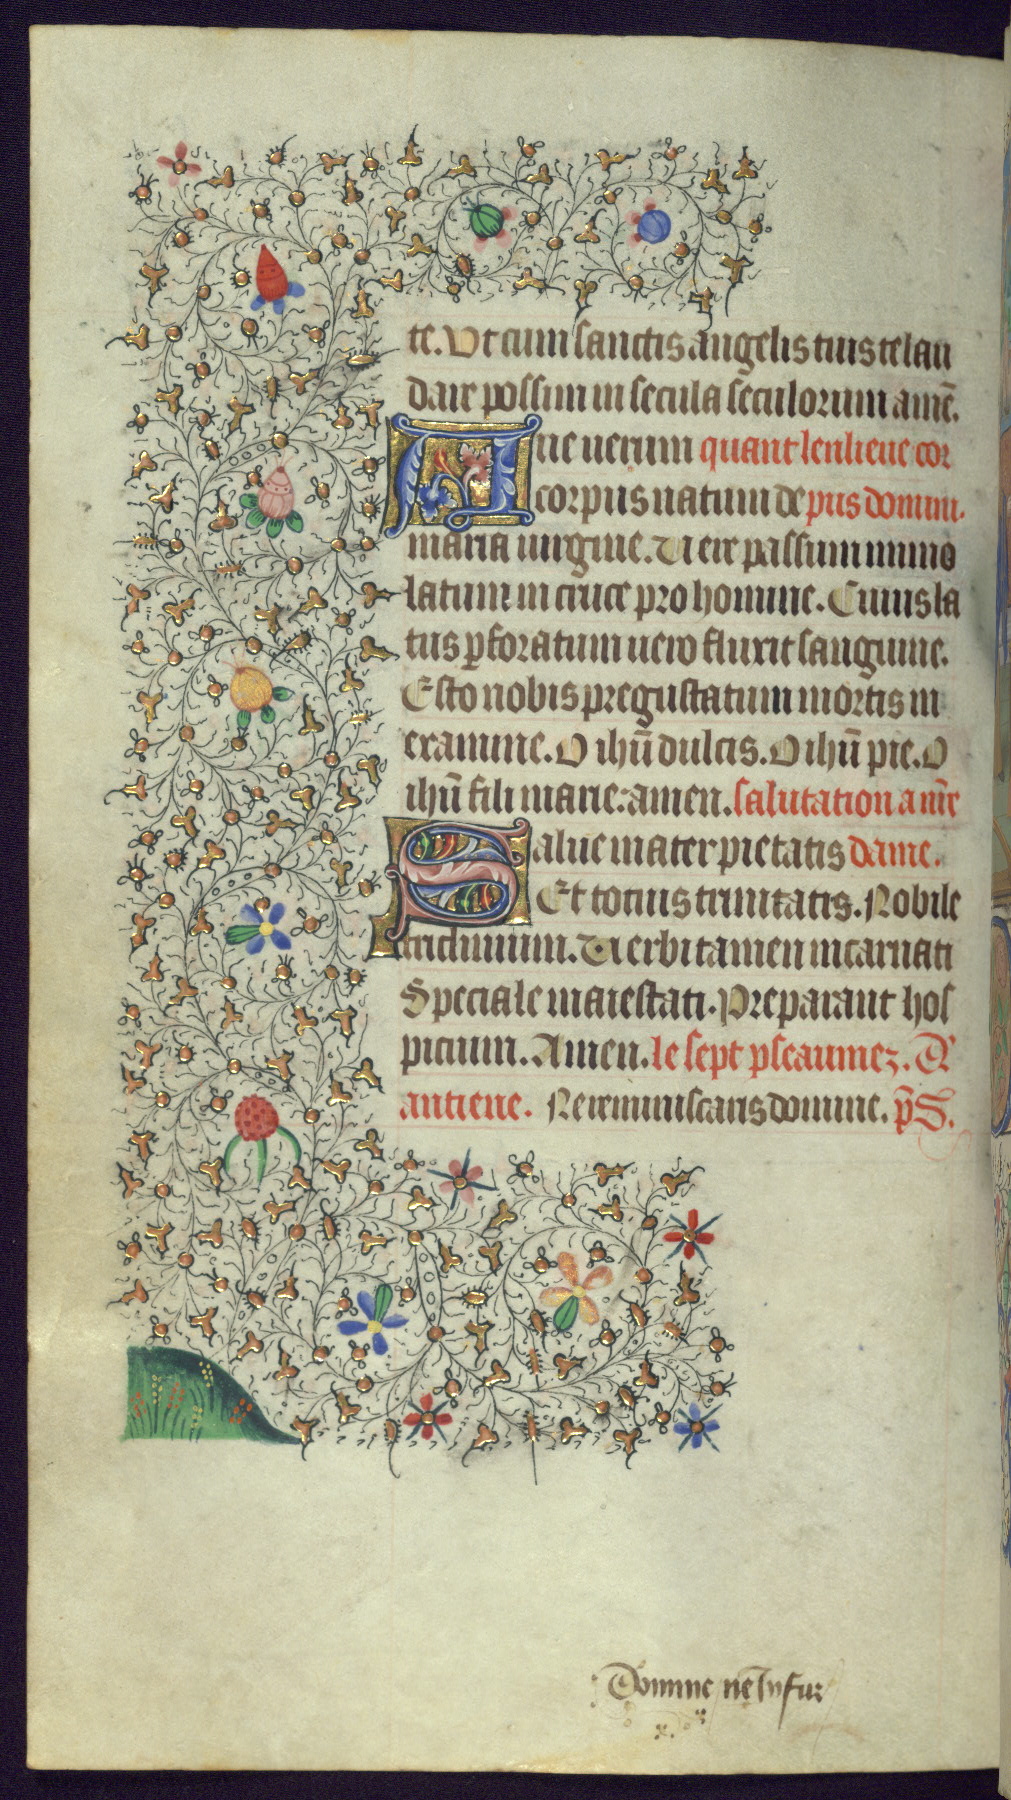 te. Ut cum sanctis angelis tuis te lau
dare possim in secula seculorum amē.
Aue uerum quant len lieue cor
corpus natum de pus domini.
maria uirgine. Uere passum immo
latum in cruce pro homine. Cuius la
tus pforatum uero fluxit sanguine.
Esto nobis pregustatum mortis in
examine. O ihū dulcis. O ihū pie. O
ihū fili marie: amen. salutation a nr̄e
Salue mater pietatis dame.
Et totius trinitatis. Nobile
triclinium. Uerbi tamen incarnati
Speciale maiestati. Preparant hos
picium. Amen. le sept pseaumez. A
antiene. Ne reminiscaris domine. pS.
Domine ne In fur